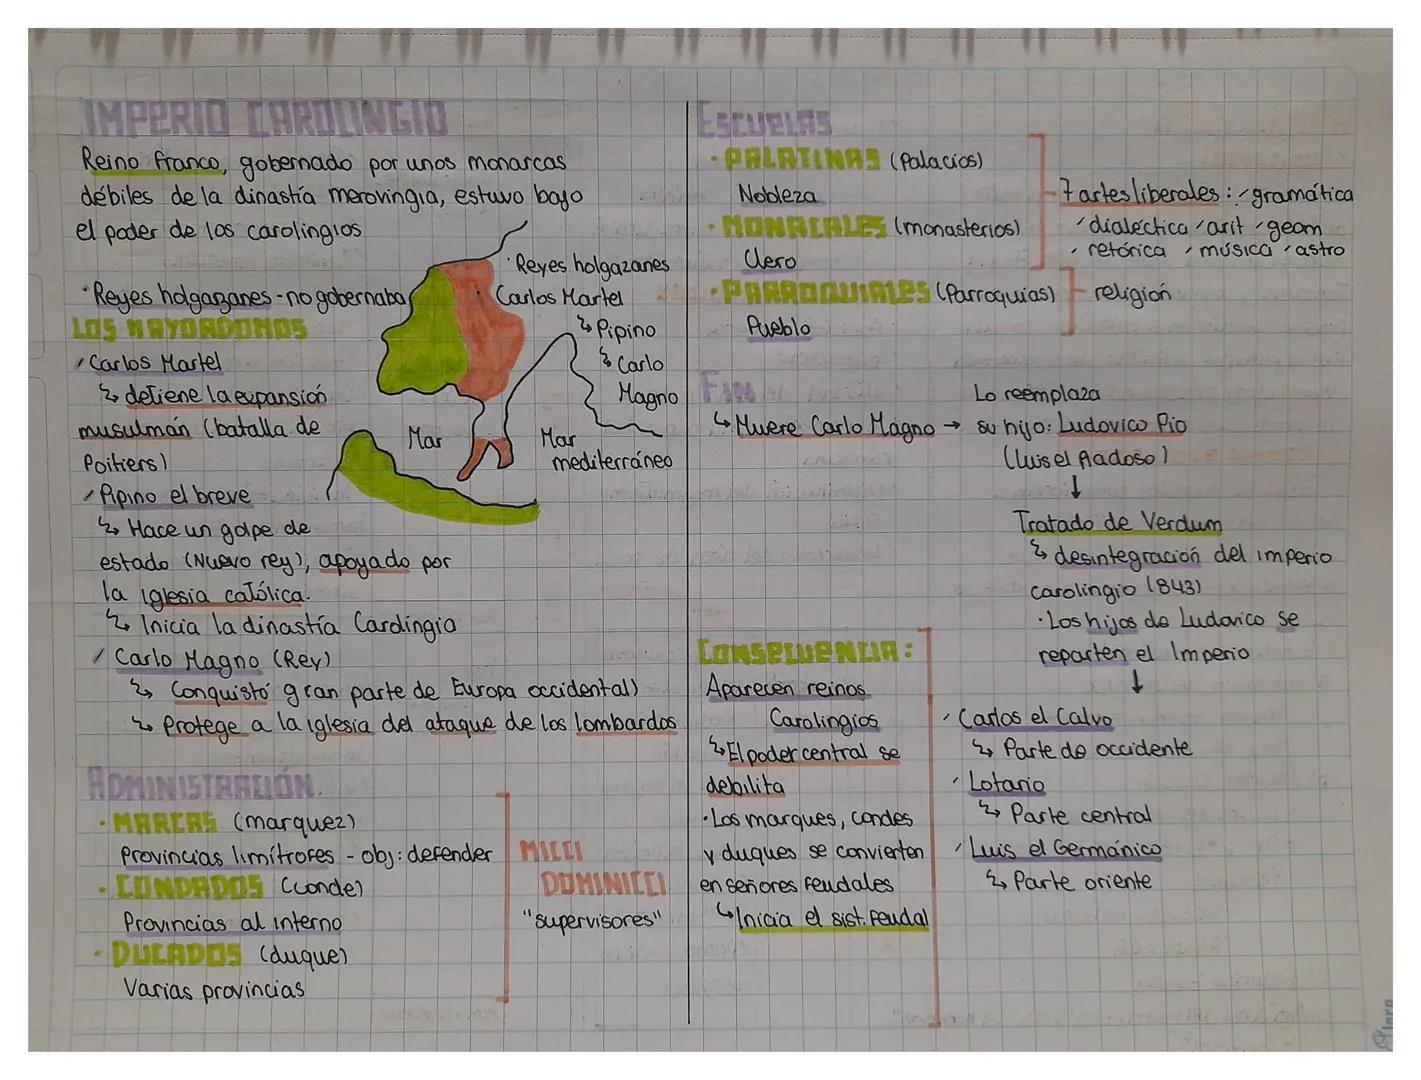 IMPERIO CAROLINGIO
Reino franco, gobernado por unos monarcas
débiles de la dinastía merovingia, estuvo bajo
el poder de los carolingios
· Reyes holgazanes - no gobernaba
LOS MAYORDOMOS
Carlos Martel
detiene la expansión
musulmán (batalla de
Poitiers)
Pipino el breve
Hace un golpe de
estado (Nuevo rey), apoyado por
la iglesia católica.
Inicia la dinastía Carolingia
Carlo Magno (Rey)
Conquistó gran parte de Europa occidental)
Protege a la iglesia del ataque de los lombardos
· Reyes holgazanes
· Carlos Martel
Pipino
Carlo
Magno
Mar
Mar
mediterráneo
ADMINISTRACIÓN.
· MARCAS (marquez)
Provincias limítrofes - obj: defender
· CONDADOS (conde)
Provincias al interno
· DUCADOS (duque)
Varias provincias
MICCI
DOMINICCI
"supervisores"
ESCUELAS
· PALATINAS (Palacios)
Nobleza
· MONACALES (monasterios)
Clero
· PARROQUIALES (Parroquias)
Pueblo
7 artes liberales: gramática
dialéctica arit geom
retórica música astro
religión
FIN
↳ Muere Carlo Magno →
Lo reemplaza
su hijo: Ludovico Pio
(Luis el Piadoso)
↓
Tratado de Verdum
desintegración del imperio
carolingio (843)
· Los hijos de Ludovico se
reparten el Imperio
↓
Carlos el Calvo
Parte de occidente
Lotario
Parte central
Luis el Germánico
Parte oriente
CONSECUENCIA:
Aparecen reinos
Carolingios
El poder central se
debilita
· Los marques, condes
y duques se convierten
en señores feudales
↳ Inicia el sist. feudal